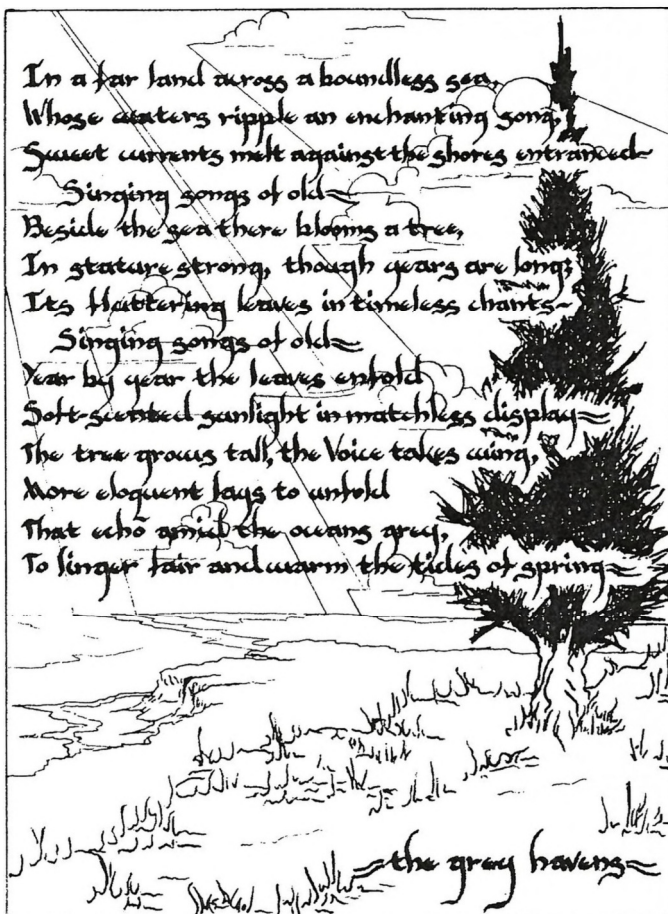 In a far land across a boundless sea,
Whose waters ripple an enchanting song,
Sweet currents melt against the shores entranced~
Singing songs of old~
Beside the sea there blooms a tree,
In stature strong, though years are long;
Its fluttering leaves in timeless chants~
Singing songs of old~
Year by year the leaves enfold
Soft-scented sunlight in matchless display~
The tree grows tall, the Voice takes wing,
More eloquent lays to unfold
That echo amid the oceans grey,
To linger fair and warm the tides of spring~
~the grey havens~